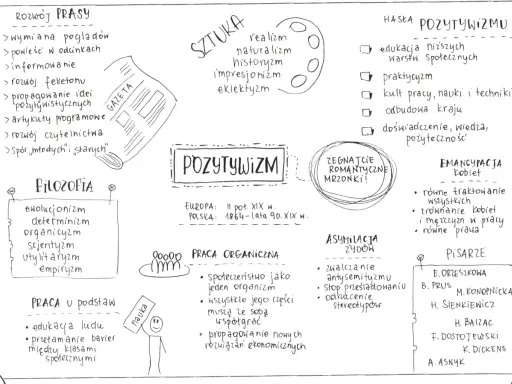 ROZWÓJ PRASY
> wymiana poglądów
> powieść w odcinkach
> informowanie
> rozwój felietonu
> propagowanie idei
pozytywistycznych
> artykuły programowe
> rozwój czytelnictwa
> spór „młodych" i „starych"
GAZETA
SZTUKA
realizm
naturalizm
historyzm
impresjonizm
eklektyzm
HASŁA POZYTYWIZMU
edukacja niższych
warstw społecznych
praktycyzm
kult pracy, nauki i techniki
odbudowa kraju
doświadczenie, wiedza,
pożyteczność
POZYTYWIZM
EUROPA: II poł. XIX w.
POLSKA: 1864 - lata 90. XIX w.
ŻEGNAJCIE
ROMANTYCZNE
MRZONKI!
EMANCYPACJA
kobiet
• równe traktowanie
wszystkich
• zrównanie kobiet
i mężczyzn w pracy
• równe prawa
FILOZOFIA
ewolucjonizm
determinizm
organicyzm
scjentyzm
utylitaryzm
empiryzm
PRACA ORGANICZNA
• społeczeństwo jako
jeden organizm
• wszystkie jego części
muszą ze sobą
współgrać
• propagowanie nowych
rozwiązań ekonomicznych
ASYMILACJA
ŻYDÓW
• zwalczanie
antysemityzmu
• stop prześladowaniu
• odrzucenie
stereotypów
PISARZE
E. ORZESZKOWA
B. PRUS
M. KONOPNICKA
H. SIENKIEWICZ
H. BALZAC
F. DOSTOJEWSKI
K. DICKENS
A. ASNYK
PRACA U podstaw
• edukacja ludu
• przełamanie barier
między klasami
społecznymi
nauka